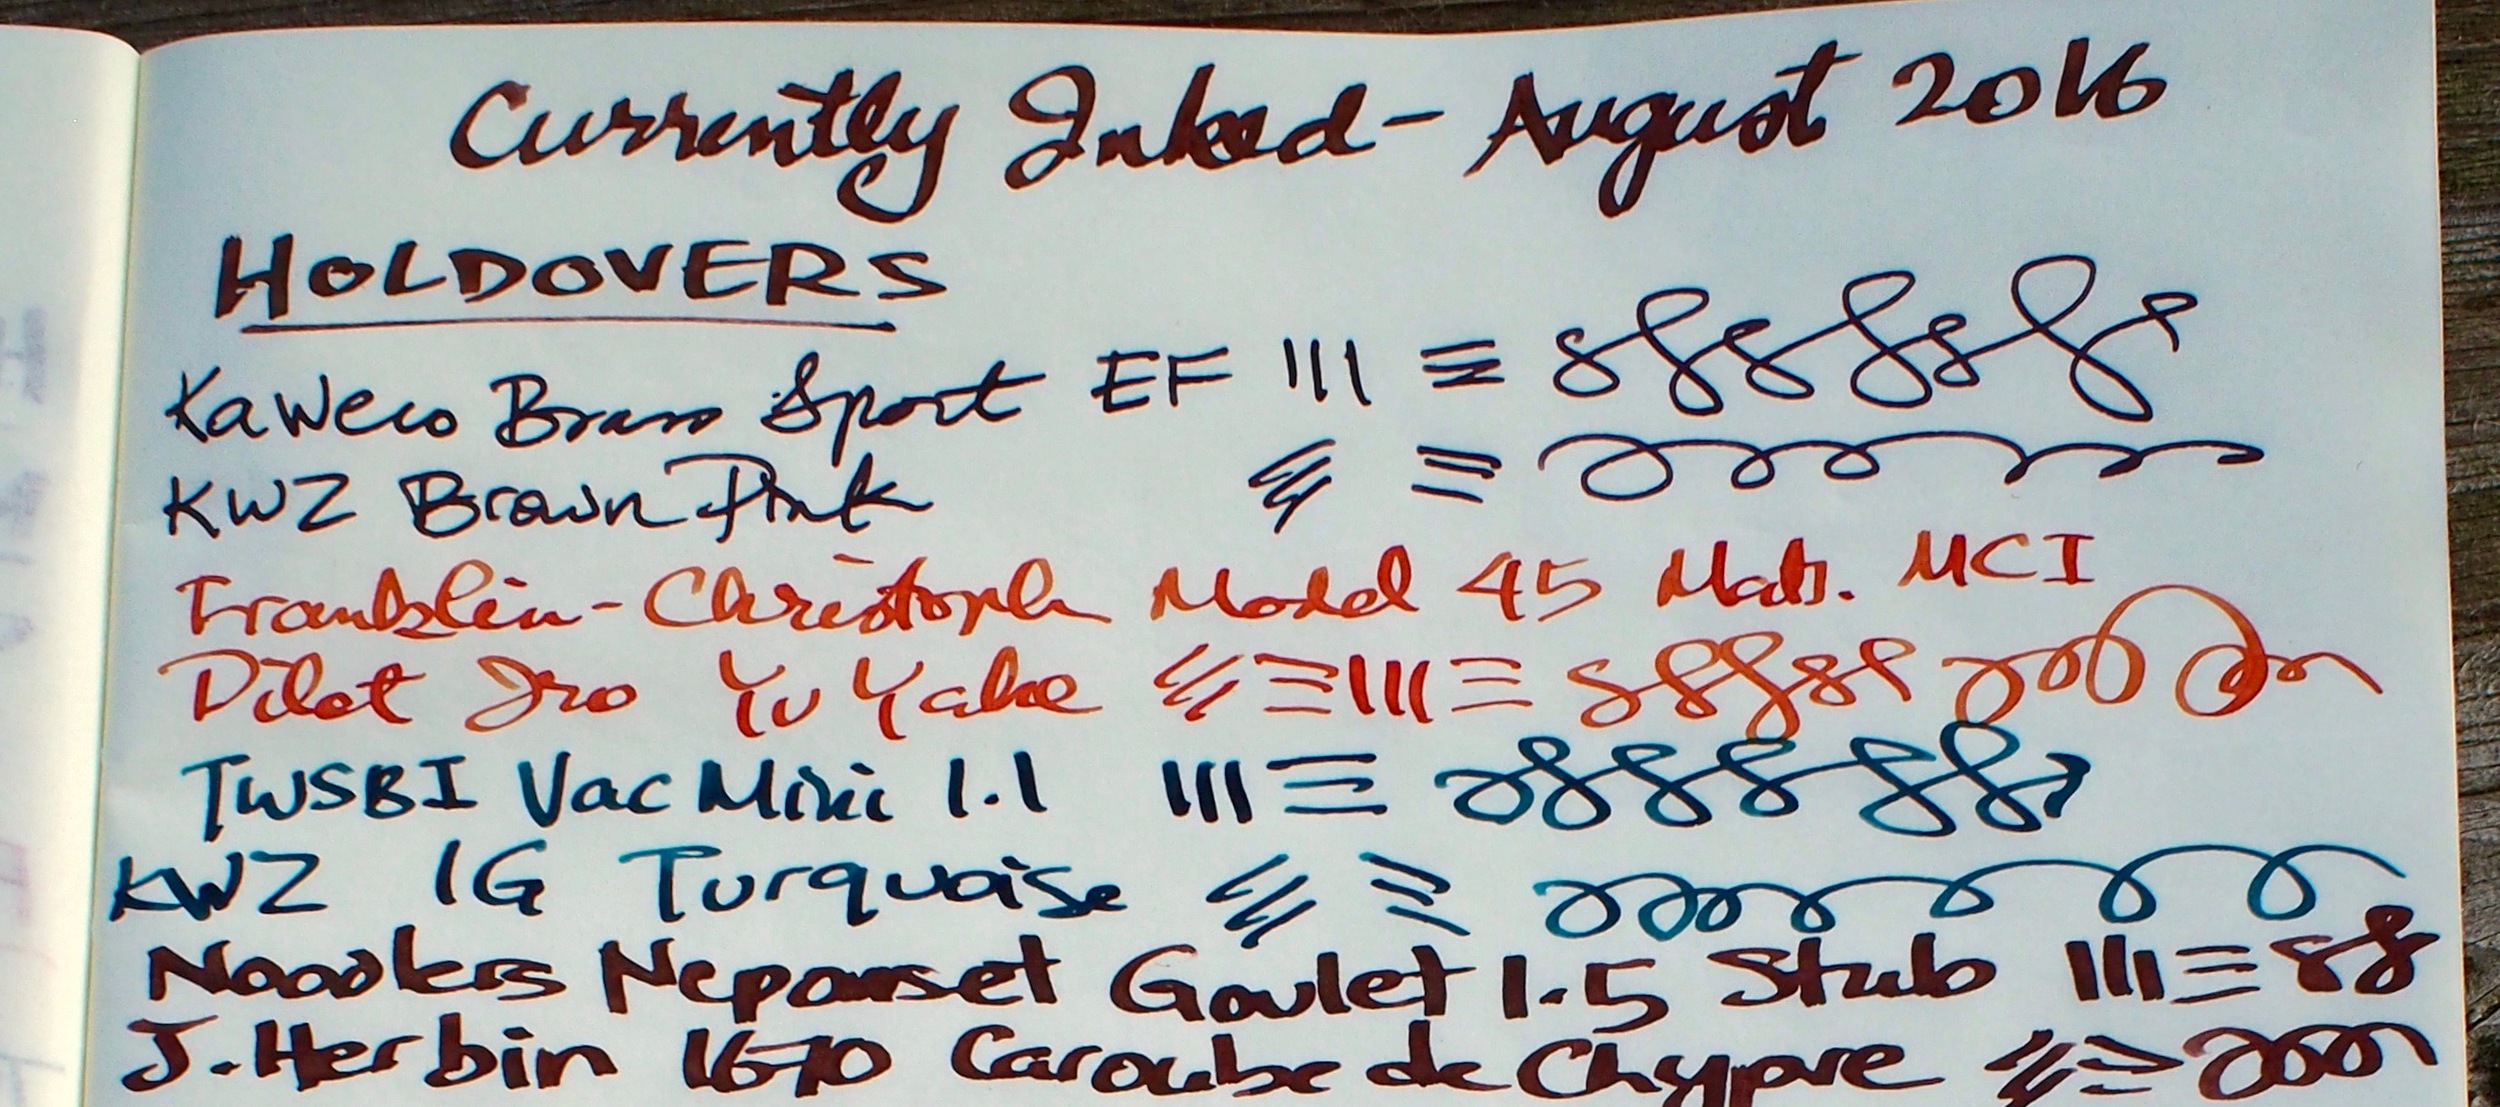 Currently Inked - August 2016
HOLDOVERS
Kaweco Brass Sport EF
KWZ Brown Pink
Franklin-Christoph Model 45 Mab. MCI
Pilot Iro Yu Yake
TWSBI Vac Mini 1.1
KWZ IG Turquoise
Noodlers Neponset Goulet 1.5 Stub
J. Herbin 1670 Caroube de Chypre